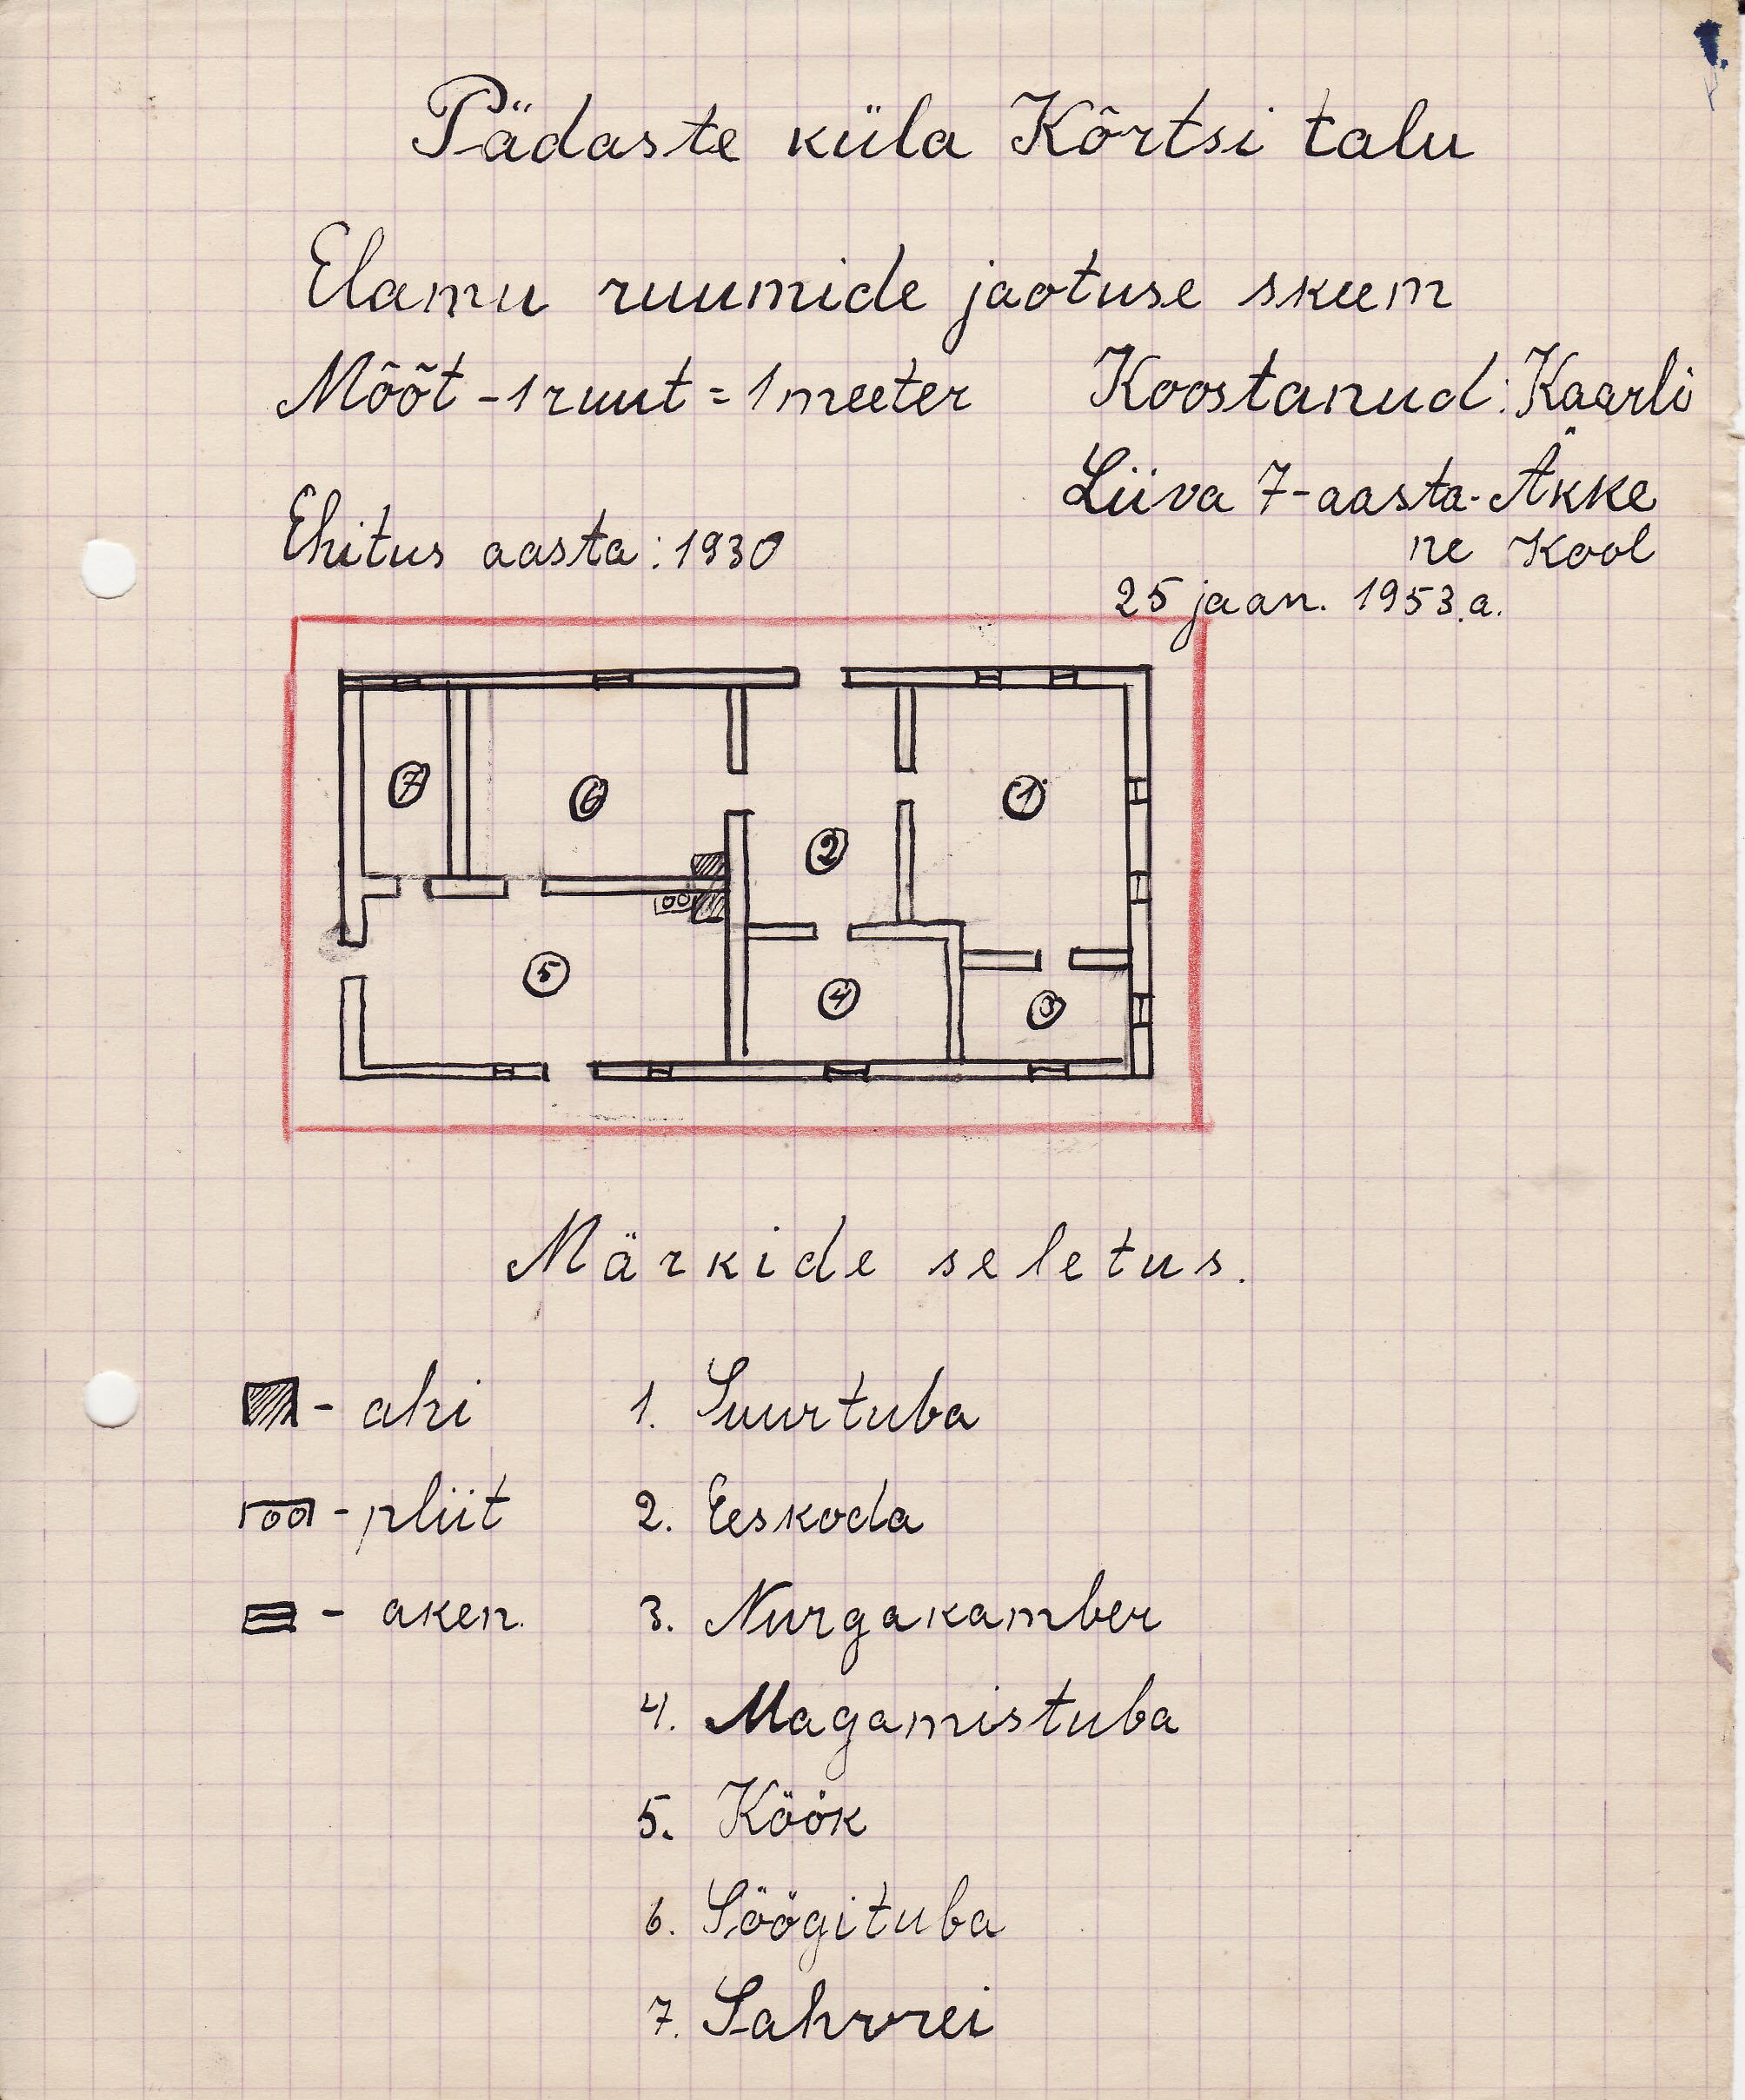 Pädaste küla Kõrtsi talu
Elamu ruumide jaotuse skeem
Mõõt - 1 ruut = 1 meeter
Koostanud: Kaarli Äkke
Liiva 7-aastane Kool
Ehitus aasta: 1930
25 jaan. 1953.a.
7
6
1
2
5
4
3
Märkide seletus.
- ahi
- pliit
- aken.
1. Suurtuba
2. Eeskoda
3. Nurgakamber
4. Magamistuba
5. Köök
6. Söögituba
7. Sahvrei